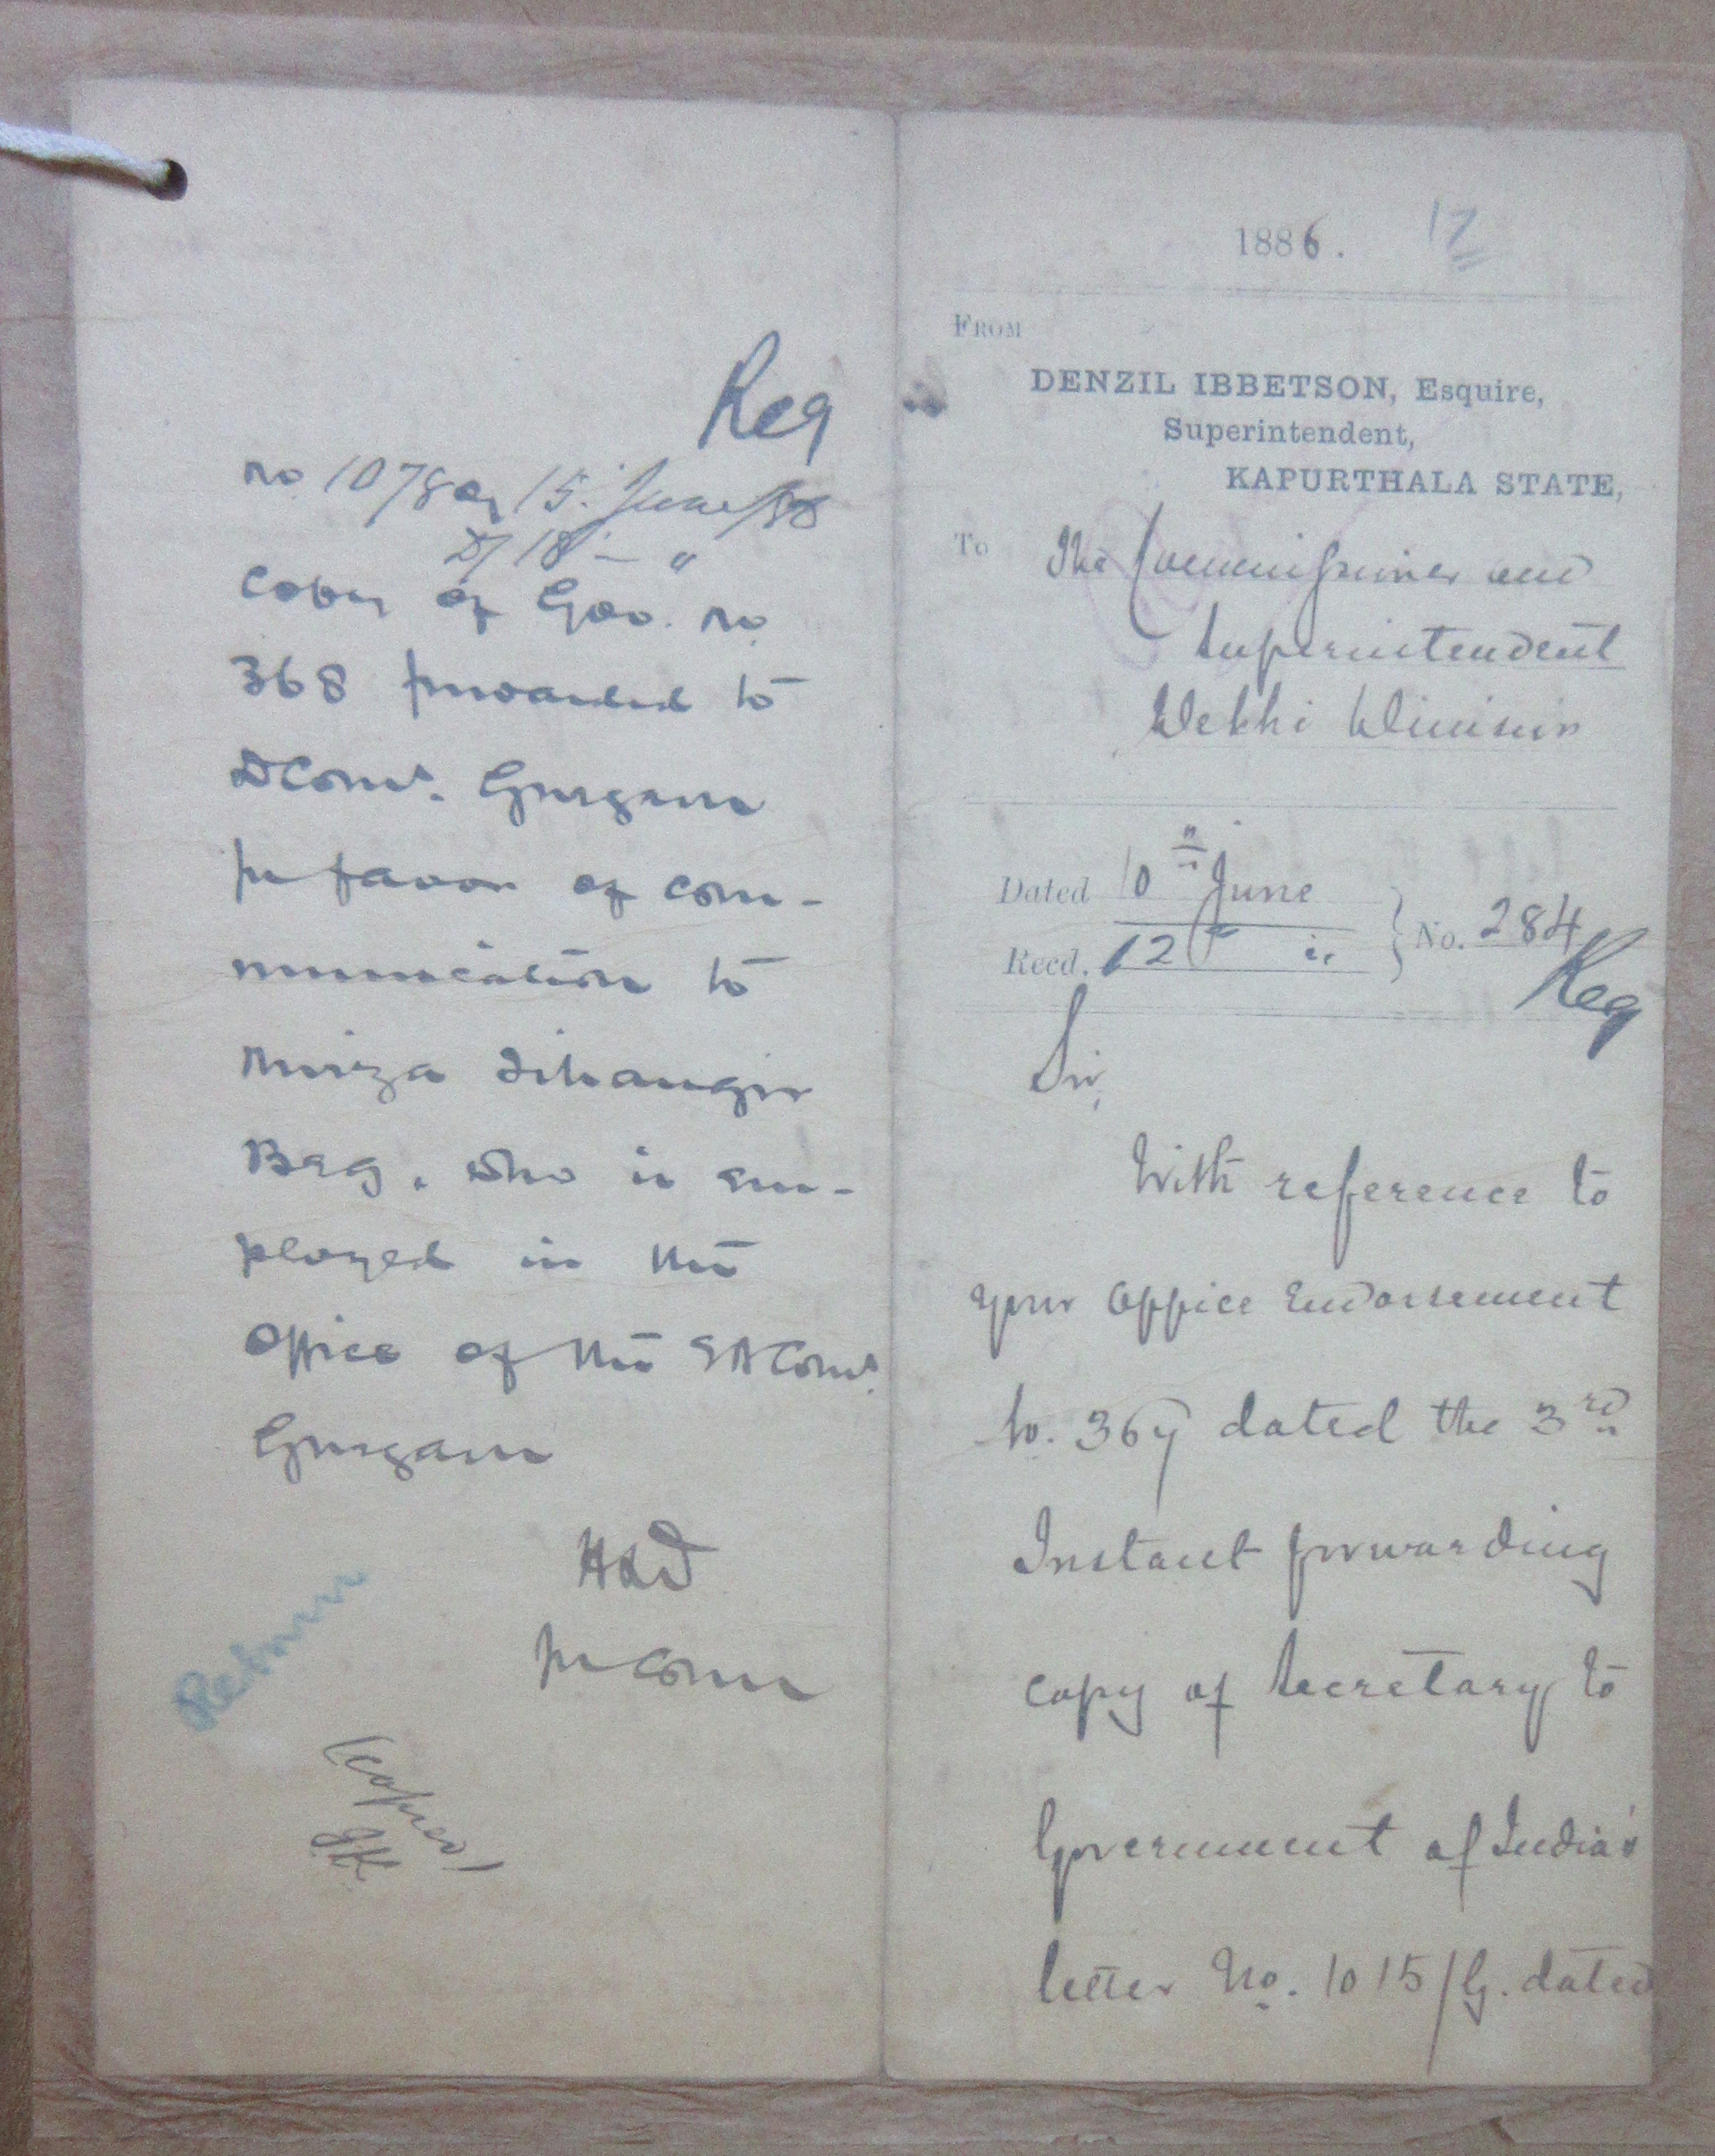 Reg
No 1078 of 15. June/86
D/ 18 - "
Copy of Gov. No
368 forwarded to
DComr. Gurgaon
for favor of com-
munication to
Mirza Jihangir
Beg, who is em-
ployed in the
Office of the SAComr.
Gurgaon
for Comr
Return
Copied
1886.
17
FROM
DENZIL IBBETSON, Esquire,
Superintendent,
KAPURTHALA STATE,
To The Commissioner and
Superintendent
Dehli Division
Dated 10th June
Recd. 12 " No. 284
Reg
Sir,
With reference to
your Office Endorsement
No. 367 dated the 3rd
Instant forwarding
copy of Secretary to
Government of India's
letter No. 1015/G. dated